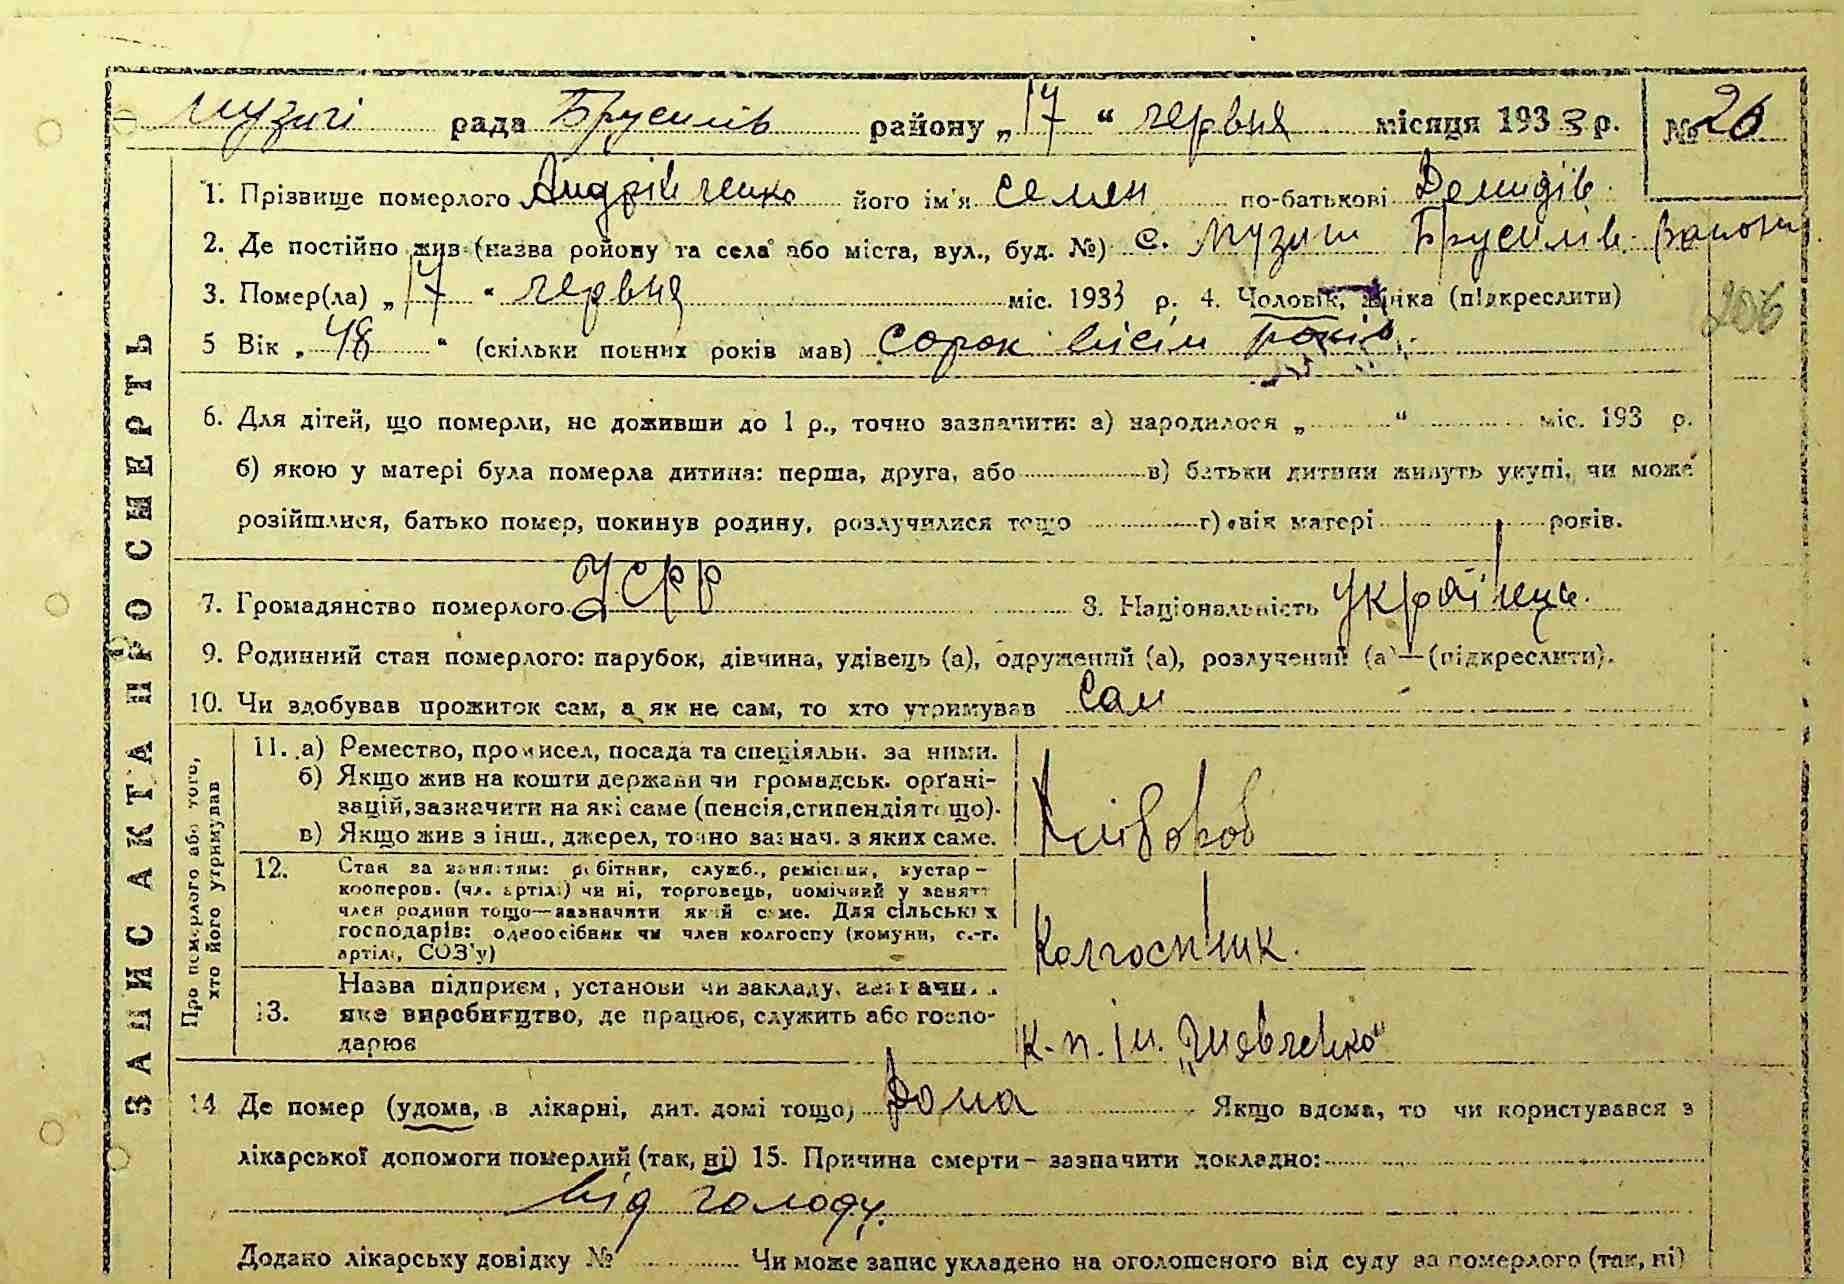 Музичі рада Брусилів району „17“ червня місяця 1933 р. № 26
1. Прізвище померлого Андрійченко його ім'я Семен по-батькові Демидів.
2. Де постійно жив (назва ройону та села або міста, вул., буд. №) с. Музичі Брусилів. району
3. Помер(ла) „17“ червня міс. 1933 р. 4. Чоловік, жінка (підкреслити)
206
5 Вік „48“ (скільки повних років мав) сорок вісім років.
6. Для дітей, що померли, не доживши до 1 р., точно зазначити: а) народилося „ “ міс. 193 р.
б) якою у матері була померла дитина: перша, друга, або в) батьки дитини живуть укупі, чи може
розійшлися, батько помер, покинув родину, розлучилися тощо г) вік матері років.
7. Громадянство померлого УСРР 8. Національність Українець.
9. Родинний стан померлого: парубок, дівчина, удівець (а), одружений (а), розлучений (а)—(підкреслити).
10. Чи здобував прожиток сам, а як не сам, то хто утримував Сам
ЗАПИС АКТА ПРО СМЕРТЬ
Про померлого або того,
хто його утримував
11. а) Ремество, промисел, посада та спеціяльн. за ними.
б) Якщо жив на кошти держави чи громадськ. орґані-
зацій, зазначити на які саме (пенсія, стипендія тощо).
в) Якщо жив з інш., джерел, точно зазнач. з яких саме.
Хлібороб
12. Стан за заняттям: робітник, служб., ремісник, кустар-
кооперов. (чл. артілі) чи ні, торговець, помічний у занятт
член родини тощо—зазначити який саме. Для сільських
господарів: одноосібник чи член колгоспу (комуни, с.-г.
артілі, СОЗ'у)
Колгоспник.
13. Назва підприєм, установи чи закладу, зазначи...
яке виробництво, де працює, служить або госпо-
дарює
к-п. ім. „Шевченко“
14 Де помер (удома, в лікарні, дит. домі тощо) Дома Якщо вдома, то чи користувався з
лікарської допомоги померлий (так, ні) 15. Причина смерти - зазначити докладно:
від голоду.
Додано лікарську довідку № Чи може запис укладено на оголошеного від суду за померлого (так, ні)